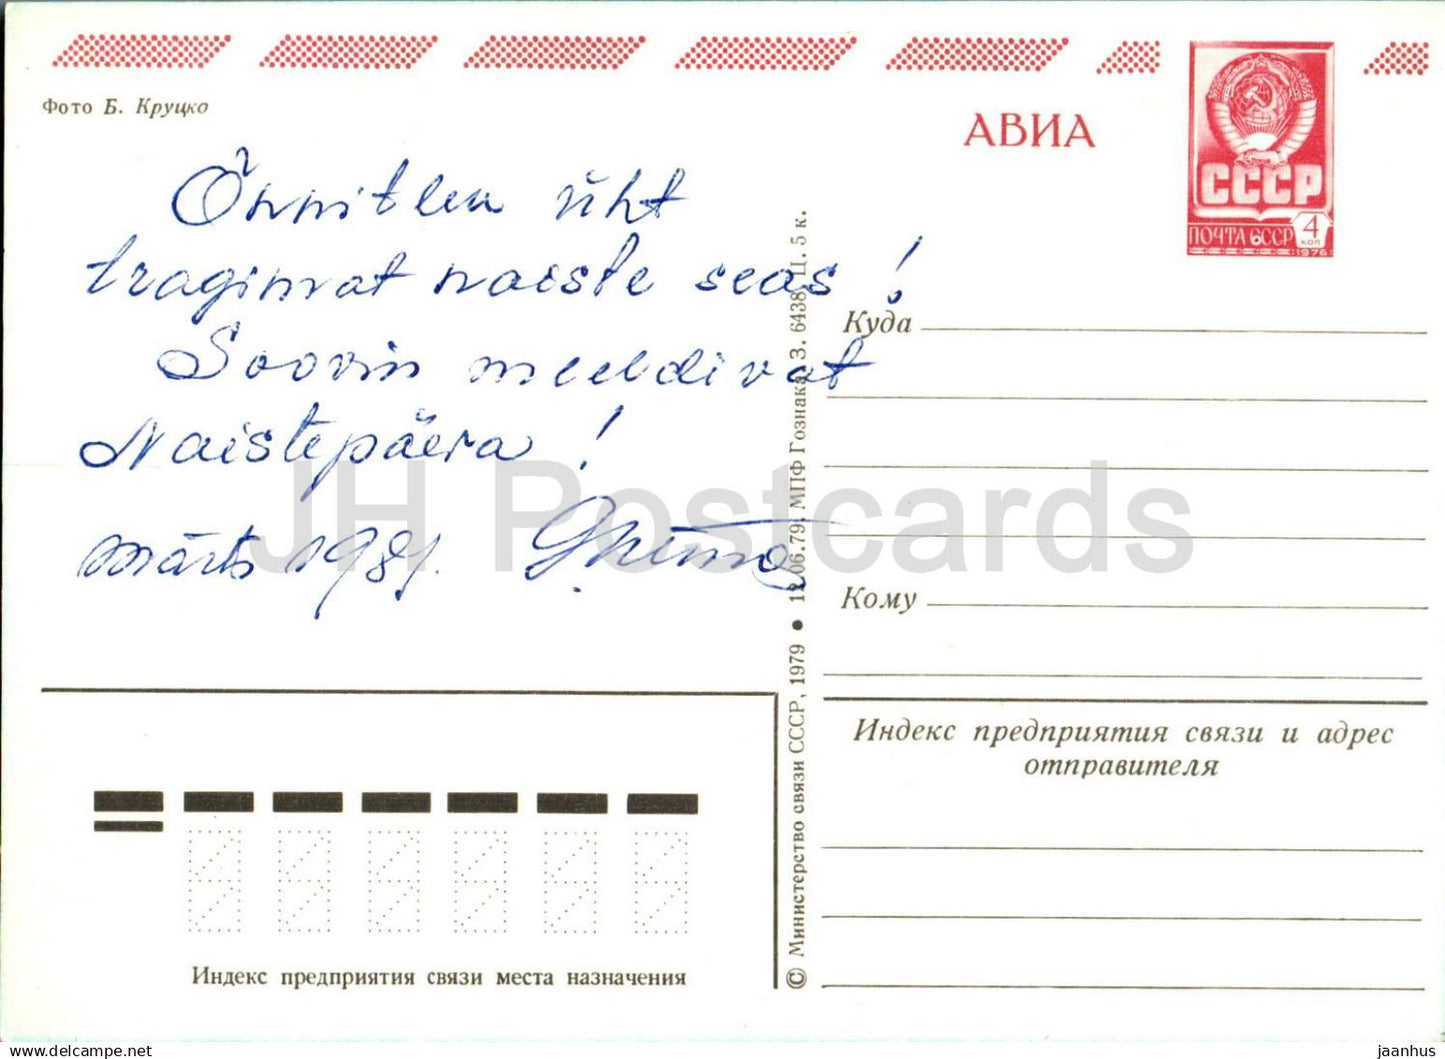 Фото Б. Круцко
АВИА
СССР
ПОЧТА СССР 4 КОП
1976
Õnnitlen üht
tragimat naiste seas!
Soovin meeldivat
Naistepäeva!
märts 1981.
Куда
Кому
Индекс предприятия связи и адрес
отправителя
Индекс предприятия связи места назначения
© Министерство связи СССР, 1979 • 12.06.79. МПФ Гознака. З. 6438. Ц. 5 к.
JH Postcards
delcampe.net
jaanhus